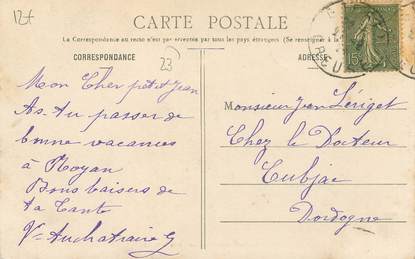 12f
CARTE POSTALE
La Correspondance au recto n'est pas acceptée par tous les pays étrangers (Se renseigner à
CORRESPONDANCE
ADRESSE
23
15
Mon Cher petit Jean
As-tu passer de
bonne vacances
à Royan
Bons baisers de
ta Tante
Monsieur Jean Lériget
Chez le Docteur
Cubjac
Dordogne